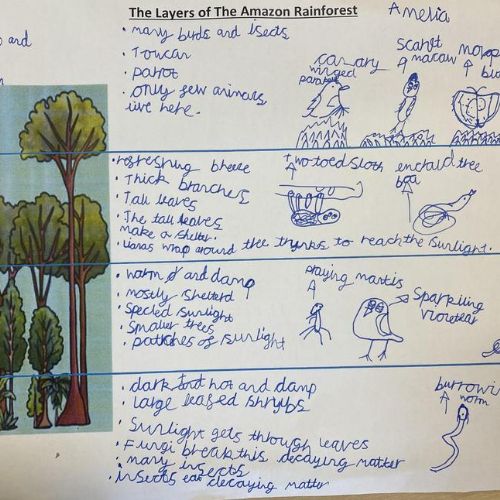 The Layers of The Amazon Rainforest
Amelia
and
• many birds and Isects
• Toucan
• parrot
• only few animals
live here.
canary
winged
parakeet
scarlet
macaw
• refreshing breeze
• Thick branches
• Tall leaves
• The tall leaves
make a shelter.
• lianas wrap around the trunks to reach the sunlight.
two toed sloth
tree
boa
• warm and damp
• mostly sheltered
• specled sunlight
• smaller trees
• patches of sunlight
praying mantis
sparkling
violetear
• dark but hot and damp
• large leafed shrubs
• Sunlight gets through leaves
• Fungi break this decaying matter
• many insects
• insects eat decaying matter
worm